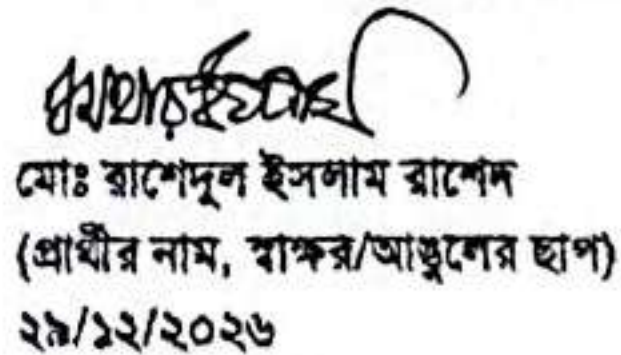 মোঃ রাশেদুল ইসলাম রাশেদ
(প্রার্থীর নাম, স্বাক্ষর/আঙুলের ছাপ)
২৯/১২/২০২৬